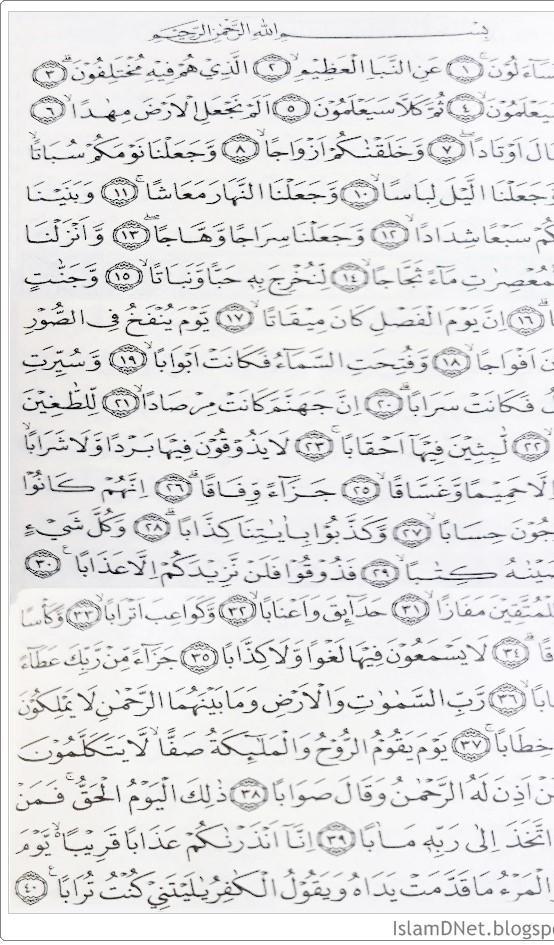 بِسْمِ اللّٰهِ الرَّحْمٰنِ الرَّحِيْمِ
لُوْنَ ۚ﴿۱﴾ عَنِ النَّبَاِ الْعَظِيْمِ ۙ﴿۲﴾ الَّذِيْ هُمْ فِيْهِ مُخْتَلِفُوْنَ ؕ﴿۳﴾
يَعْلَمُوْنَ ۙ﴿۴﴾ ثُمَّ كَلَّا سَيَعْلَمُوْنَ ﴿۵﴾ اَلَمْ نَجْعَلِ الْاَرْضَ مِهٰدًا ۙ﴿۶﴾
بَالَ اَوْتَادًا ۪ۙ﴿۷﴾ وَّخَلَقْنٰكُمْ اَزْوَاجًا ۙ﴿۸﴾ وَّجَعَلْنَا نَوْمَكُمْ سُبَاتًا ۙ
جَعَلْنَا الَّيْلَ لِبَاسًا ۙ﴿۱۰﴾ وَّجَعَلْنَا النَّهَارَ مَعَاشًا ۪﴿۱۱﴾ وَبَنَيْنَا
كُمْ سَبْعًا شِدَادًا ۙ﴿۱۲﴾ وَّجَعَلْنَا سِرَاجًا وَّهَّاجًا ۪ۙ﴿۱۳﴾ وَّاَنْزَلْنَا
لْمُعْصِرٰتِ مَآءً ثَجَّاجًا ۙ﴿۱۴﴾ لِّنُخْرِجَ بِهٖ حَبًّا وَّنَبَاتًا ۙ﴿۱۵﴾ وَّجَنّٰتٍ
ا ؕ﴿۱۶﴾ اِنَّ يَوْمَ الْفَصْلِ كَانَ مِيْقَاتًا ۙ﴿۱۷﴾ يَّوْمَ يُنْفَخُ فِي الصُّوْرِ
نَ اَفْوَاجًا ۙ﴿۱۸﴾ وَّفُتِحَتِ السَّمَآءُ فَكَانَتْ اَبْوَابًا ۙ﴿۱۹﴾ وَّسُيِّرَتِ
لُ فَكَانَتْ سَرَابًا ؕ﴿۲۰﴾ اِنَّ جَهَنَّمَ كَانَتْ مِرْصَادًا ۙ﴿۲۱﴾ لِّلطّٰغِيْنَ
﴿۲۲﴾ لّٰبِثِيْنَ فِيْهَآ اَحْقَابًا ۚ﴿۲۳﴾ لَا يَذُوْقُوْنَ فِيْهَا بَرْدًا وَّلَا شَرَابًا ۙ
لَّا حَمِيْمًا وَّغَسَّاقًا ۙ﴿۲۵﴾ جَزَآءً وِّفَاقًا ؕ﴿۲۶﴾ اِنَّهُمْ كَانُوْا
جُوْنَ حِسَابًا ۙ﴿۲۷﴾ وَّكَذَّبُوْا بِاٰيٰتِنَا كِذَّابًا ؕ﴿۲۸﴾ وَكُلَّ شَيْءٍ
يْنٰهُ كِتٰبًا ۙ﴿۲۹﴾ فَذُوْقُوْا فَلَنْ نَّزِيْدَكُمْ اِلَّا عَذَابًا ﴿۳۰﴾
لْمُتَّقِيْنَ مَفَازًا ۙ﴿۳۱﴾ حَدَآئِقَ وَاَعْنَابًا ۙ﴿۳۲﴾ وَّكَوَاعِبَ اَتْرَابًا ۙ﴿۳۳﴾ وَّكَاْسًا
قًا ؕ﴿۳۴﴾ لَا يَسْمَعُوْنَ فِيْهَا لَغْوًا وَّلَا كِذّٰبًا ۚ﴿۳۵﴾ جَزَآءً مِّنْ رَّبِّكَ عَطَآءً
ابًا ۙ﴿۳۶﴾ رَّبِّ السَّمٰوٰتِ وَالْاَرْضِ وَمَا بَيْنَهُمَا الرَّحْمٰنِ لَا يَمْلِكُوْنَ
خِطَابًا ۚ﴿۳۷﴾ يَوْمَ يَقُوْمُ الرُّوْحُ وَالْمَلٰٓئِكَةُ صَفًّا ؕۙ لَّا يَتَكَلَّمُوْنَ
نْ اَذِنَ لَهُ الرَّحْمٰنُ وَقَالَ صَوَابًا ﴿۳۸﴾ ذٰلِكَ الْيَوْمُ الْحَقُّ ۚ فَمَنْ
اتَّخَذَ اِلٰى رَبِّهٖ مَاٰبًا ﴿۳۹﴾ اِنَّآ اَنْذَرْنٰكُمْ عَذَابًا قَرِيْبًا ۖۚ يَّوْمَ
الْمَرْءُ مَا قَدَّمَتْ يَدَاهُ وَيَقُوْلُ الْكٰفِرُ يٰلَيْتَنِيْ كُنْتُ تُرٰبًا ﴿۴۰﴾
IslamDNet.blogsp